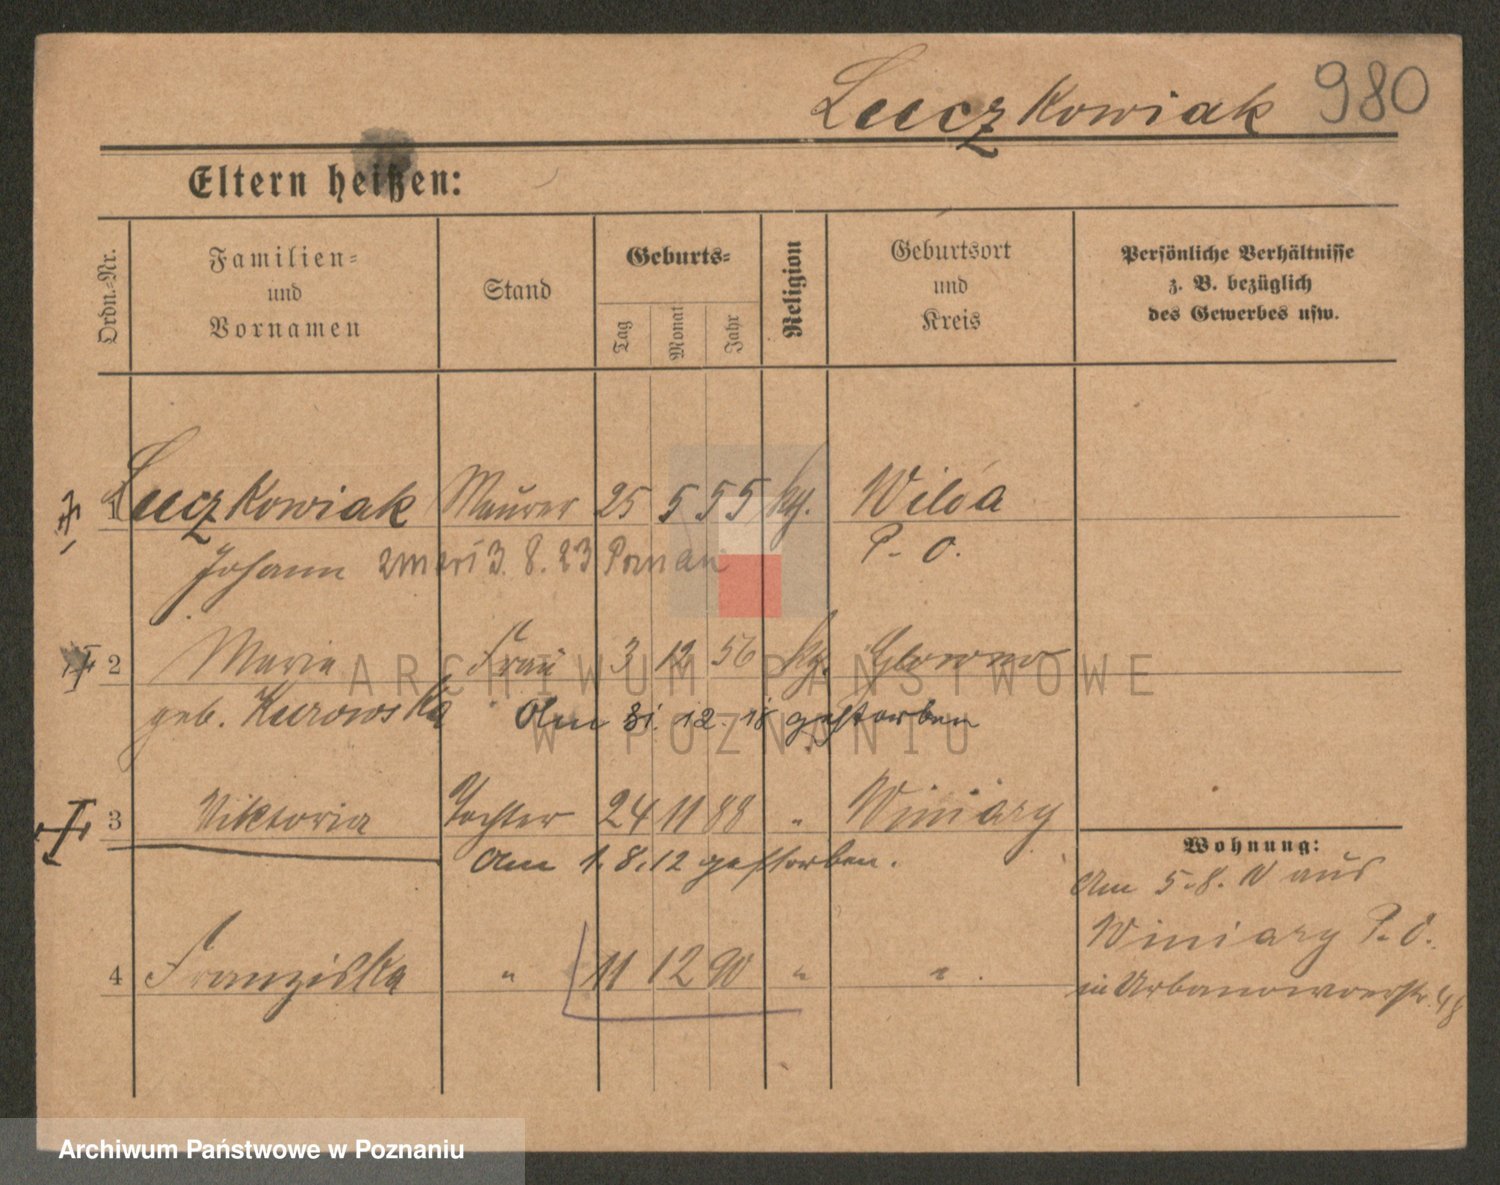 Luczkowiak 980
Eltern heißen:
Ordn.-Nr.
Familien-
und
Vornamen
Stand
Geburts-
Tag
Monat
Jahr
Religion
Geburtsort
und
Kreis
Persönliche Verhältnisse
z. B. bezüglich
des Gewerbes usw.
1 Luczkowiak Maurer 25 5 55 kg. Wilda
Johann zmarł 3. 8. 23 Poznań P. O.
2 Maria Frau 3 12 56 kg. Glowno
geb. Kurowska Am 31. 12. 18 gestorben
3 Viktoria Tochter 24 11 88 " Winiary
Am 1.8.12 gestorben.
4 Franziska " 11 12 90 " ".
Wohnung:
Am 5.8. aus
Winiary P. O.
in Urbanowoerstr.
ARCHIWUM PAŃSTWOWE
W POZNANIU
Archiwum Państwowe w Poznaniu